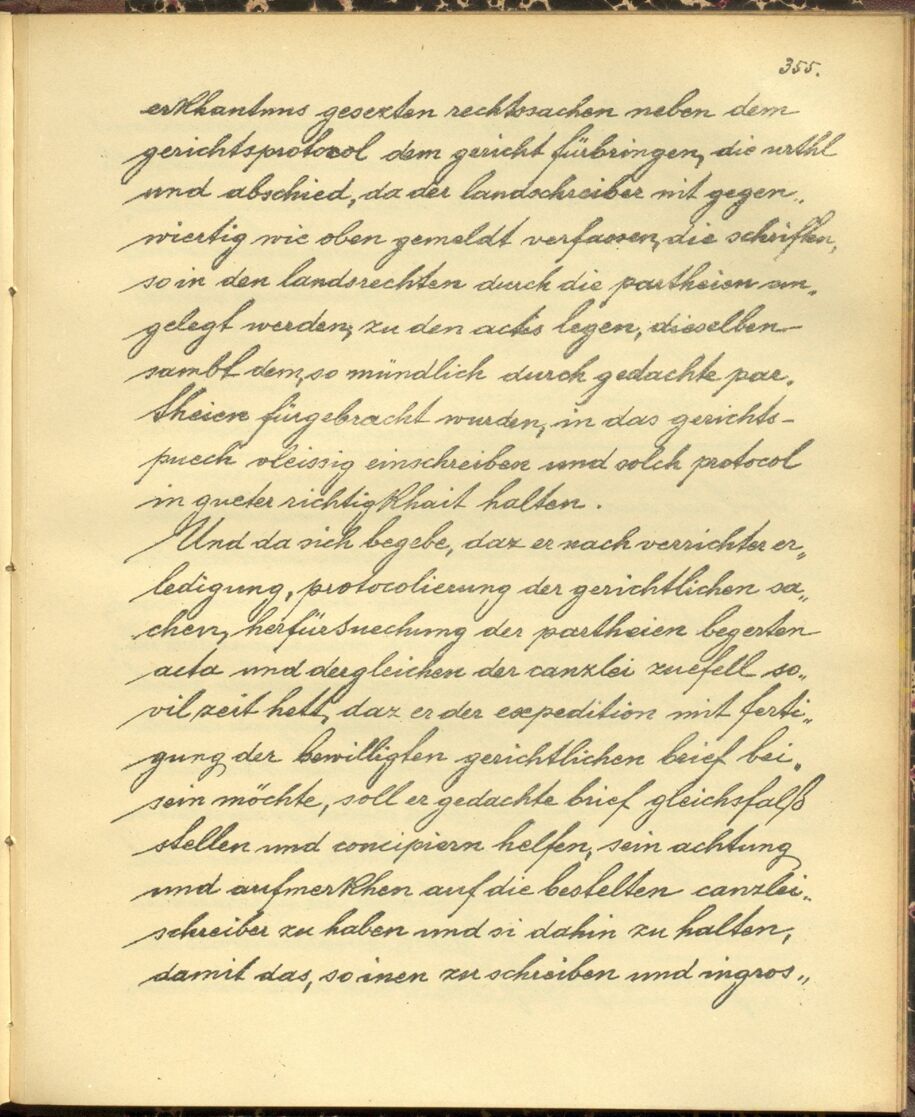 355.
erkhantnus gesezten rechtssachen neben dem
gerichtsprotocol dem gericht fürbringen, die urthl
und abschied, da der landschreiber nit gegen„
wiertig wie oben gemeldt verfassen, die schriften,
so in den landsrechten durch die partheien an„
gelegt werden, zu den actis legen, dieselben
sambt dem, so mündlich durch gedachte par„
theien fürgebracht wurden, in das gerichts-
puech vleissig einschreiben und solch protocol
in gueter richtigkhait halten.
Und da sich begebe, daz er nach verrichter er„
ledigung, protocolierung der gerichtlichen sa„
chen, herfürsuechung der partheien begerten
acta und dergleichen der canzlei zuefell so„
vil zeit hett, daz er der expedition mit ferti„
gung der bewilligten gerichtlichen brief bei„
sein möchte, soll er gedachte brief gleichsfalß
stellen und concipiern helfen, sein achtung
und aufmerkhen auf die bestelten canzlei„
schreiber zu haben und si dahin zu halten,
damit das, so inen zu schreiben und ingros„